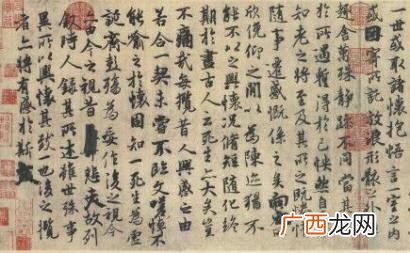 一世或取諸懷抱悟言一室之內
或因寄所託放浪形骸之外
趣舍萬殊靜躁不同當其
於所遇蹔得於己怏然自
知老之將至及其所之既惓
隨事遷感慨係之矣向
欣俛仰之閒以為陳迹猶不
能不以之興懷況脩短隨化終
期於盡古人云死生亦大矣豈
不痛哉每攬昔人興感之由
若合一契未嘗不臨文嗟悼不
能喻之於懷固知一死生為虛
誕齊彭殤為妄作後之視今
亦由今之視昔悲夫故列
敘時人錄其所述雖世殊事
異所以興懷其致一也後之攬
者亦將有感於斯文
广西龙网